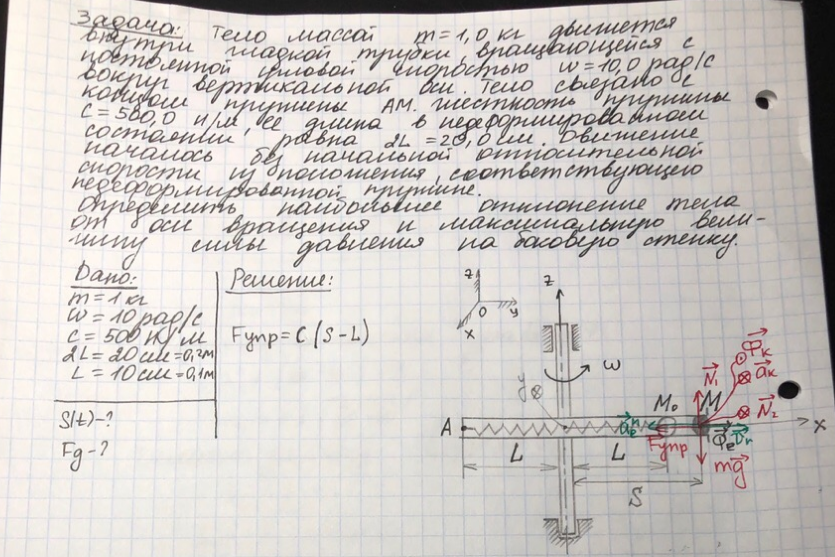 Задача: Тело массой m=1,0 кг движется
внутри гладкой трубки, вращающейся с
постоянной угловой скоростью ω=10,0 рад/с
вокруг вертикальной оси. Тело связано с
концом пружины АМ. Жесткость пружины
c=500,0 н/м, ее длина в недеформированном
состоянии равна 2L=20,0 см. Движение
началось без начальной относительной
скорости из положения, соответствующего
недеформированной пружине.
Определить наибольшее отклонение тела
от оси вращения и максимальную вели-
чину силы давления на боковую стенку.
Дано:
m=1 кг
ω=10 рад/с
c=500 н/м
2L=20 см=0,2м
L=10 см=0,1м
S(t)-?
Fg-?
Решение:
Fупр=C(S-L)
z
O
y
x
z
ω
y
A
M₀
M
N₁
Φк
aк
N₂
Fупр
Φe
Vr
mg
x
L
L
S